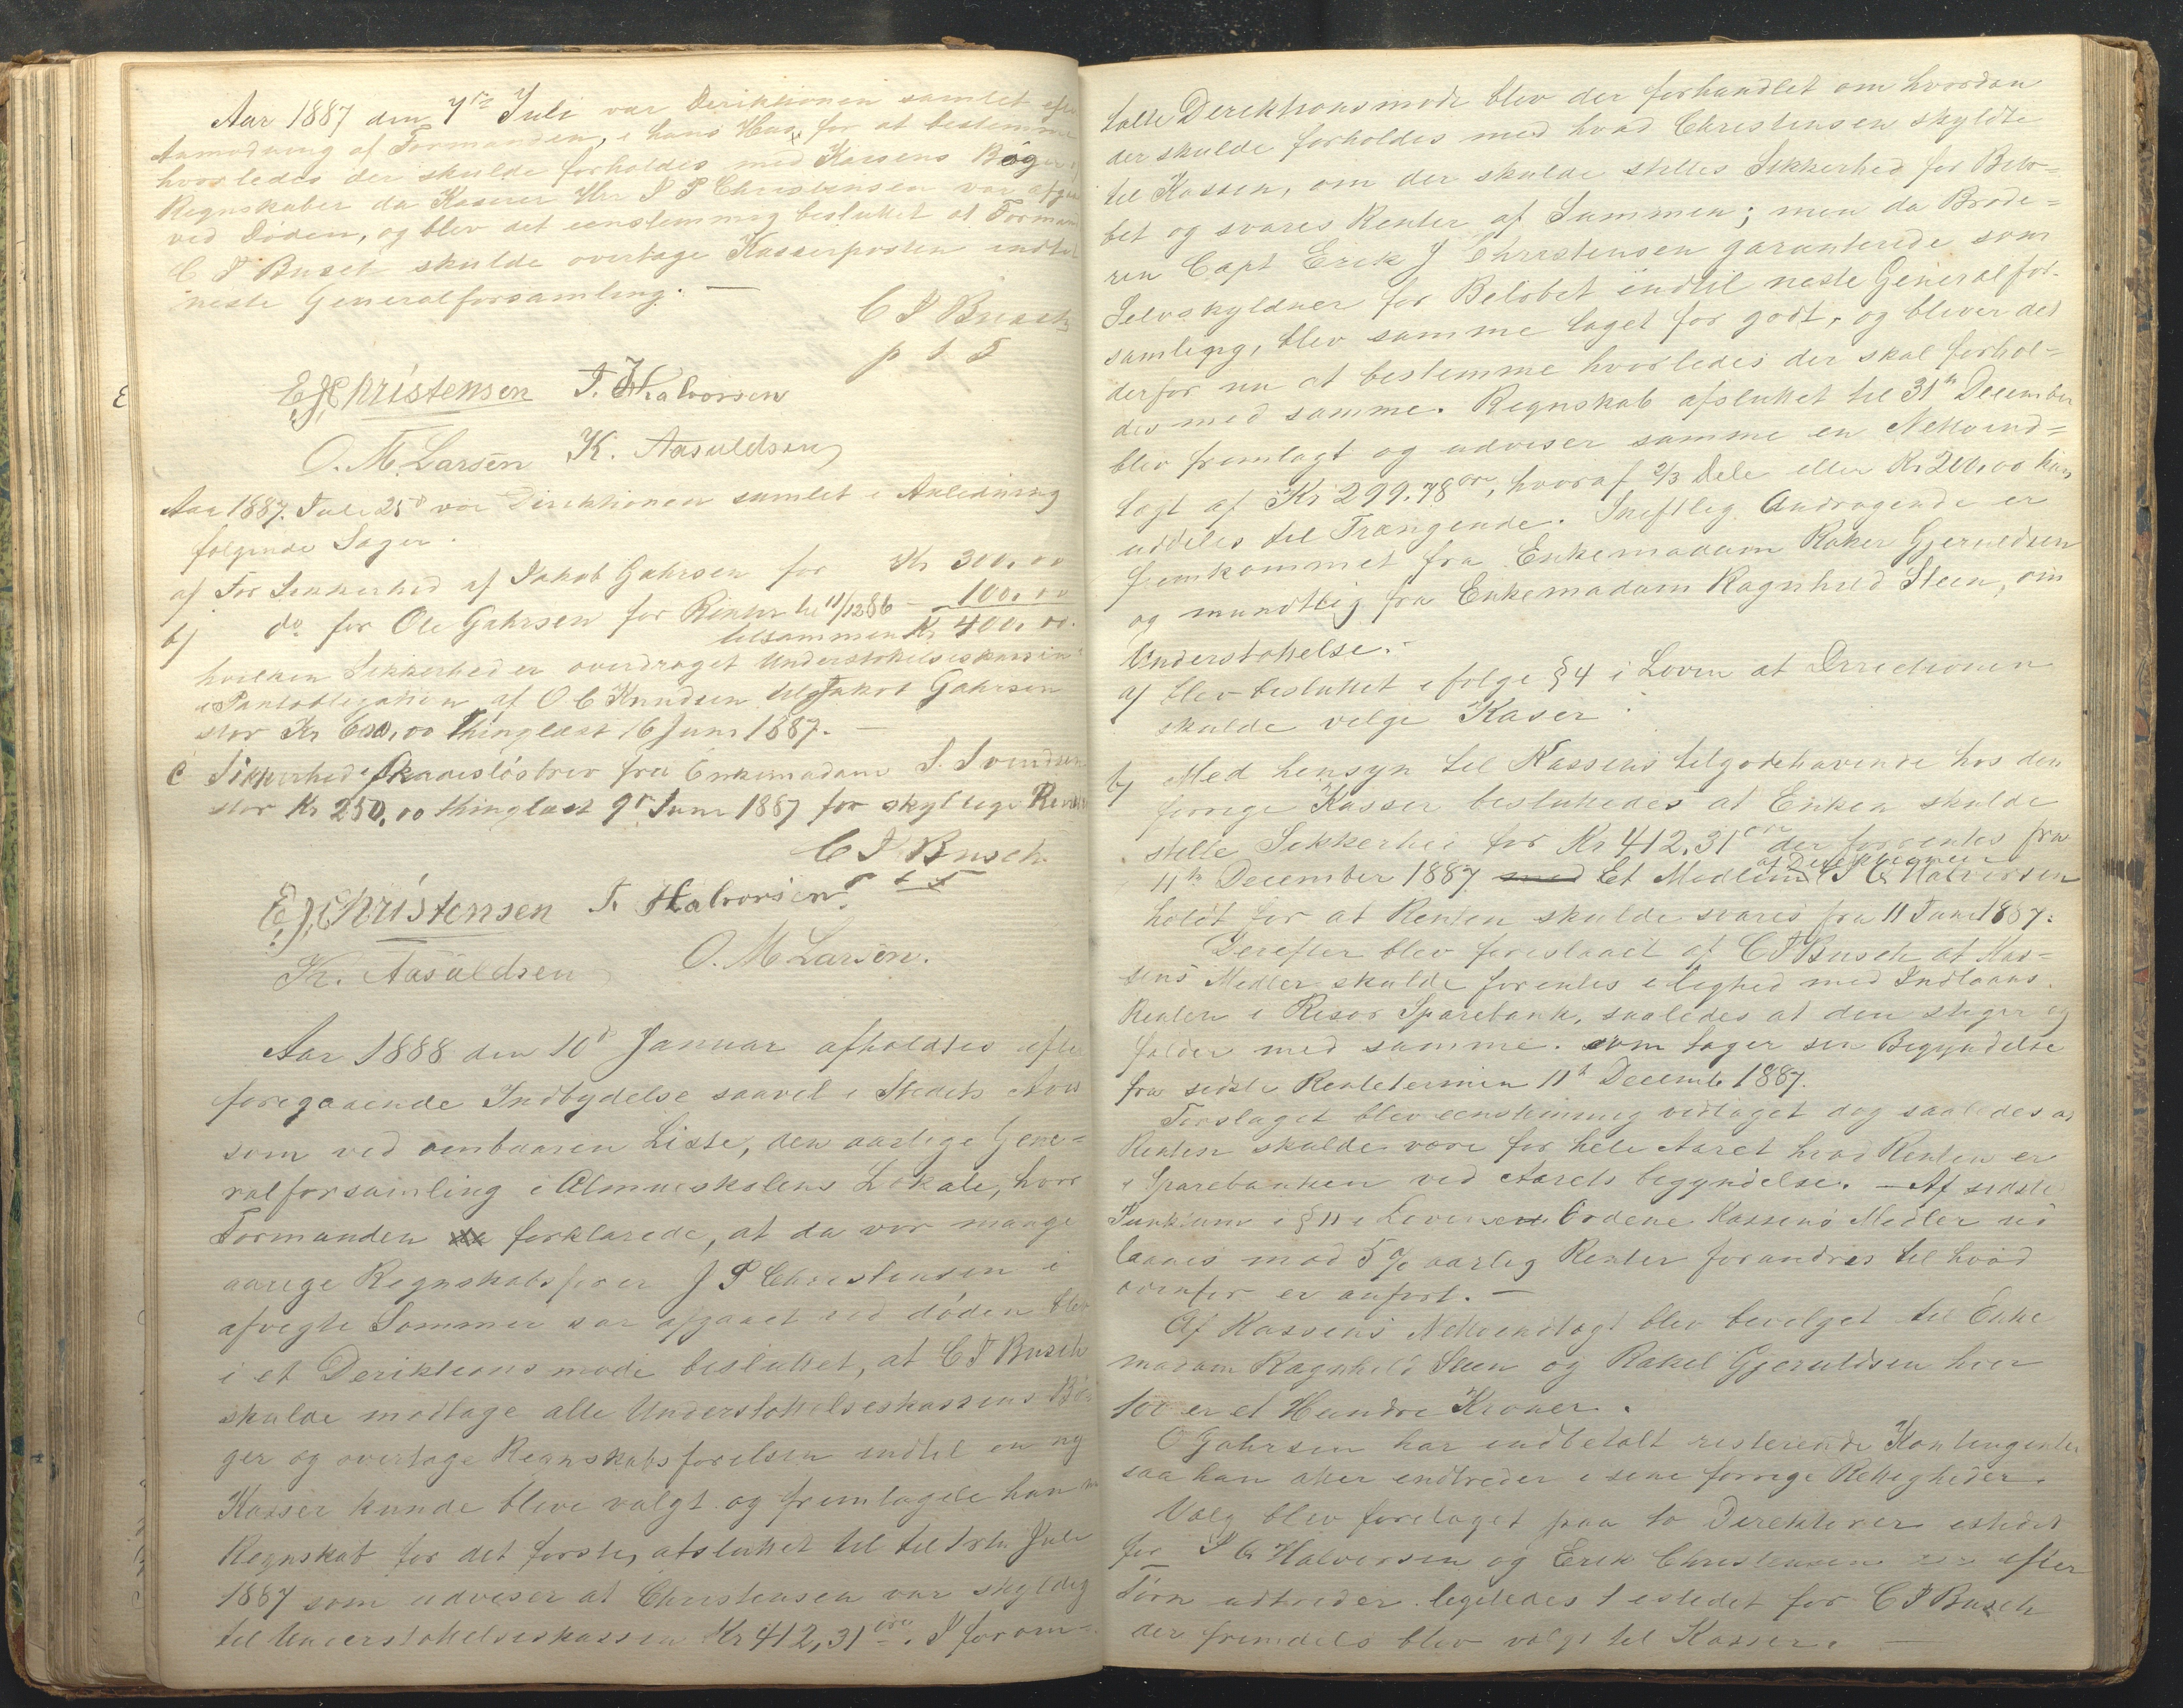 Aar 1887 den 7de Juli var Deriktionen samlet efter
Anmodning af Formanden, i hans Hus for at bestemme
hvorledes der skulde forholdes med Kassens Bøger,
Regnskaber da Kasserer Hr J P Christensen var afgaaet
ved Døden, og blev det eenstemmig besluttet at Formand
C T Busch skulde overtage Kasserposten indtil
neste Generalforsamling. —
C T Busch
p t F
E J Christensen T. Halvorsen
O. M. Larsen K. Aasuldsen
Aar 1887. Juli 25d var Direktionen samlet i Anledning
følgende Sager.
a) For Sikkerhed af Jakob Gahrsen for Kr 300,00
b) do for Ole Gahrsen for Renter til 11/12 86 – 100,00
tilsammen Kr 400,00.
hvilken Sikkerhed er overdraget Understøttelseskassen
i Pantobligation af O C Knudsen til Jakob Gahrsen
stor Kr 600,00 thinglæst 16 Juni 1887. —
c Sikkerhed i Skadesløsbrev fra Enkemadam S. Svendsen
stor Kr 250,00 thinglæst 9de Juni 1887 for skyldige Renter
C T Busch
p t F
E. J. Christensen T. Halvorsen
K. Aasuldsen O. M Larsen.
Aar 1888 den 10d Januar afholdtes efter
foregaaende Indbydelse saavel i Stedets Avis
som ved ombaaren Liste, den aarlige Gene=
ralforsamling i Almueskolens Lokale, hvor
Formanden forklarede, at da vor mange
aarige Regnskabsfører J P Christensen i
afvigte Sommer var afgaaet ved døden blev
i et Deriktionsmøde besluttet, at C T Busch
skulde modtage alle Understøttelseskassens Bø=
ger og overtage Regnskabsførelsen indtil en ny
Kasser kunde blive valgt og fremlagde han nu
Regnskab for det første, afsluttet til til 1ste Juli
1887 som udviser at Christensen var skyldig
til Understøttelseskassen Kr 412,31 øre. I forom=
talte Derektionsmøde blev der forhandlet om hvordan
der skulde forholdes med hvad Christensen skyldte
til Kassen, om der skulde stilles Sikkerhed for Belø=
bet og svares Renter af Summen; men da Brode=
ren Capt Erik J Christensen garanterede som
Selvskyldner for Beløbet indtil neste Generalfor-
samling, blev samme taget for godt, og bliver det
derfor nu at bestemme hvorledes der skal forhol=
des med samme. Regnskab afsluttet til 31te December
blev fremlagt og udviser samme en Nettoind=
tægt af Kr 299.78 øre, hvoraf 2/3 Dele eller Kr 200,00 kan
uddeles til Trængende. Skriftlig Andragende er
fremkommet fra Enkemadam Rakel Gjeruldsen
og mundtlig fra Enkemadam Ragnhild Steen, om
Understøttelse. -
a) blev besluttet ifølge § 4 i Loven at Direcktionen
skulde velge Kaser.
b) Med hensyn til Kassens tilgodehavende hos den
forrige Kasser besluttedes at Enken skulde
stille Sikkerhed for Kr 412,31 øre der forrentes fra
11te December 1887 med Et Medlem af Direktionen T G Halvorsen
holdt for at Renten skulde svares fra 11 Juni 1887.
Derefter blev foreslaaet af C T Busch at Kas=
sens Midler skulde forentes i lighed med Indlaans.
Renten i Risør Sparebank, saaledes at den stiger og
falder med samme. som tager sin Begyndelse
fra sidste Rentetermin 11te Decemb. 1887.
Forslaget blev eenstemmig vedtaget dog saaledes at
Renten skulde være for hele Aaret hvad Renten er
i Sparebanken ved Aarets begyndelse. — Af sidste
Punktum i § 11 i Loven Ordene Kassens Midler ud
laanes mod 5 % aarlig Renter forandres til hvad
ovenfor er anført. —
Af Kassens Nettoindtægt blev bevilget til Enke
madam Ragnhild Steen og Rakel Gjeruldsen hver
100 er et Hundre Kroner.
O Gahrsen har indbetalt resterende Kontingenter
saa han atter indtræder i sine forrige Rettigheder.
Valg blev foretaget paa to Direktører istedet
for T G Halvorsen og Erik Christensen efter
Tørn udtræder. ligeledes 1 istedet for C T Busch
der fremdeles blev valgt til Kasser. —